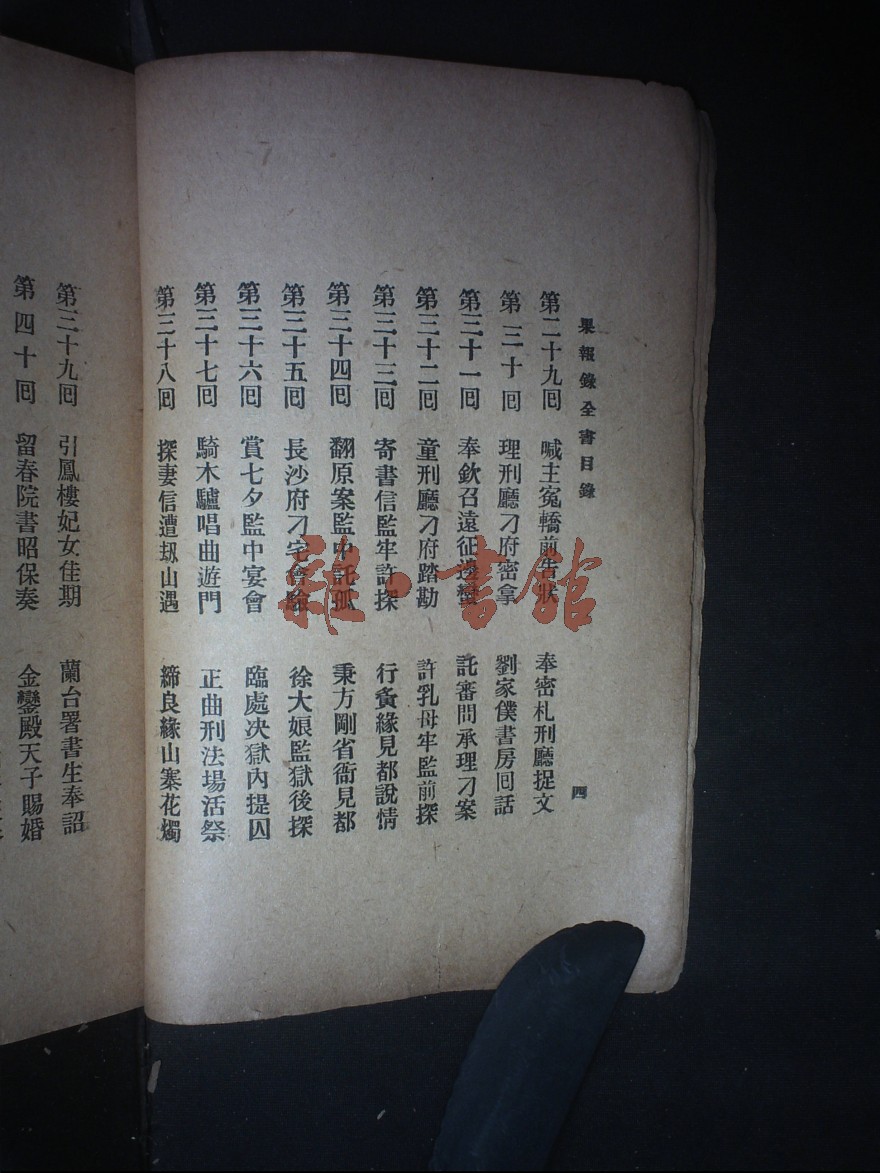 果報錄全書目錄
四
第二十九回 喊主冤轎前告狀 奉密札刑廳捉文
第三十回 理刑廳刁府密拿 劉家僕書房回話
第三十一回 奉欽召遠征邊蠻 託審問承理刁案
第三十二回 童刑廳刁府踏勘 許乳母牢監前探
第三十三回 寄書信監牢許探 行夤緣見都說情
第三十四回 翻原案監中託孤 秉方剛省衙見都
第三十五回 長沙府刁宅會驗 徐大娘監獄後探
第三十六回 賞七夕監中宴會 臨處决獄內提囚
第三十七回 騎木驢唱曲遊門 正曲刑法場活祭
第三十八回 探妻信遭刼山遇 締良緣山寨花燭
第三十九回 引鳳樓妃女佳期 蘭台署書生奉詔
第四十回 留春院書昭保奏 金鑾殿天子賜婚
雜·書館